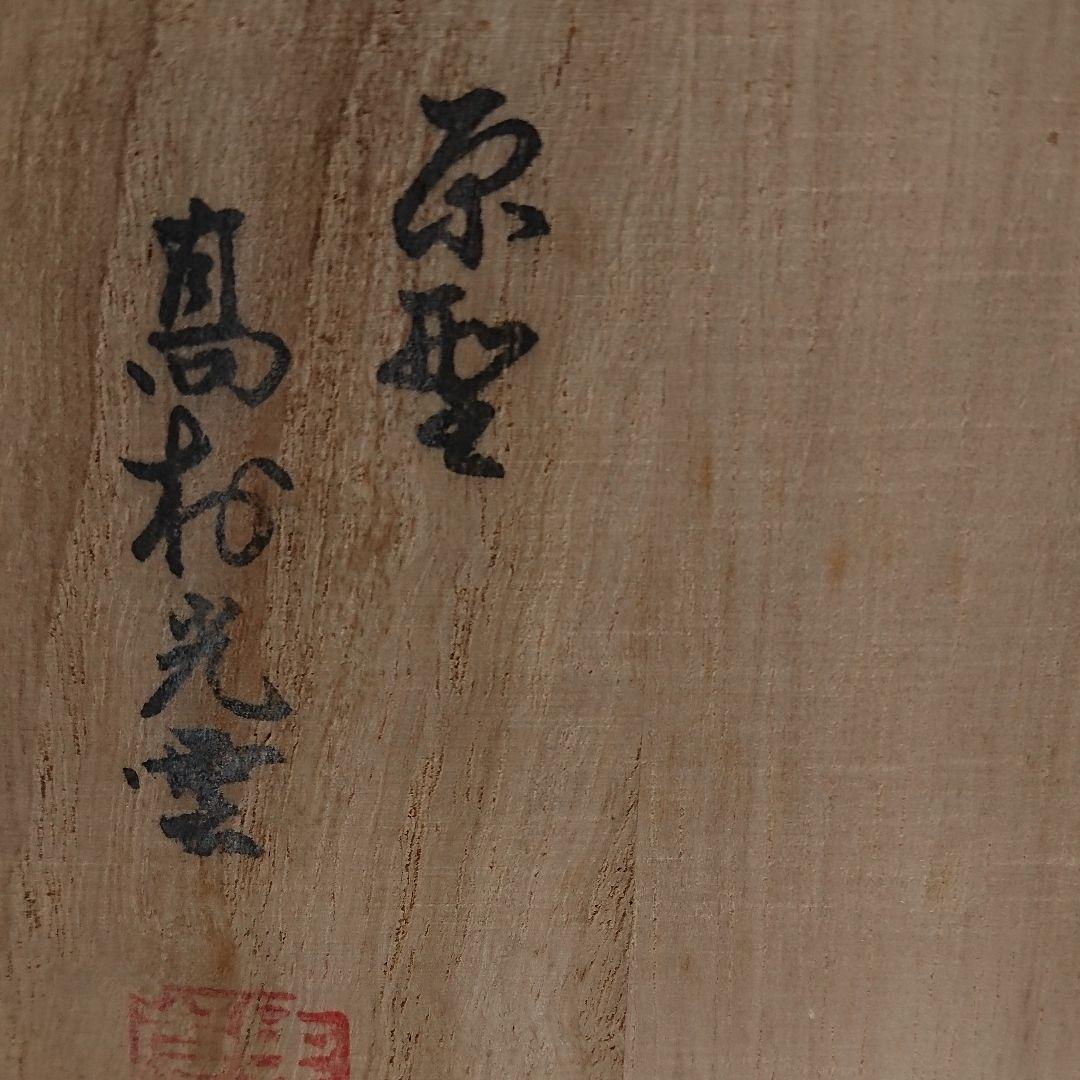 原型
髙村光雲